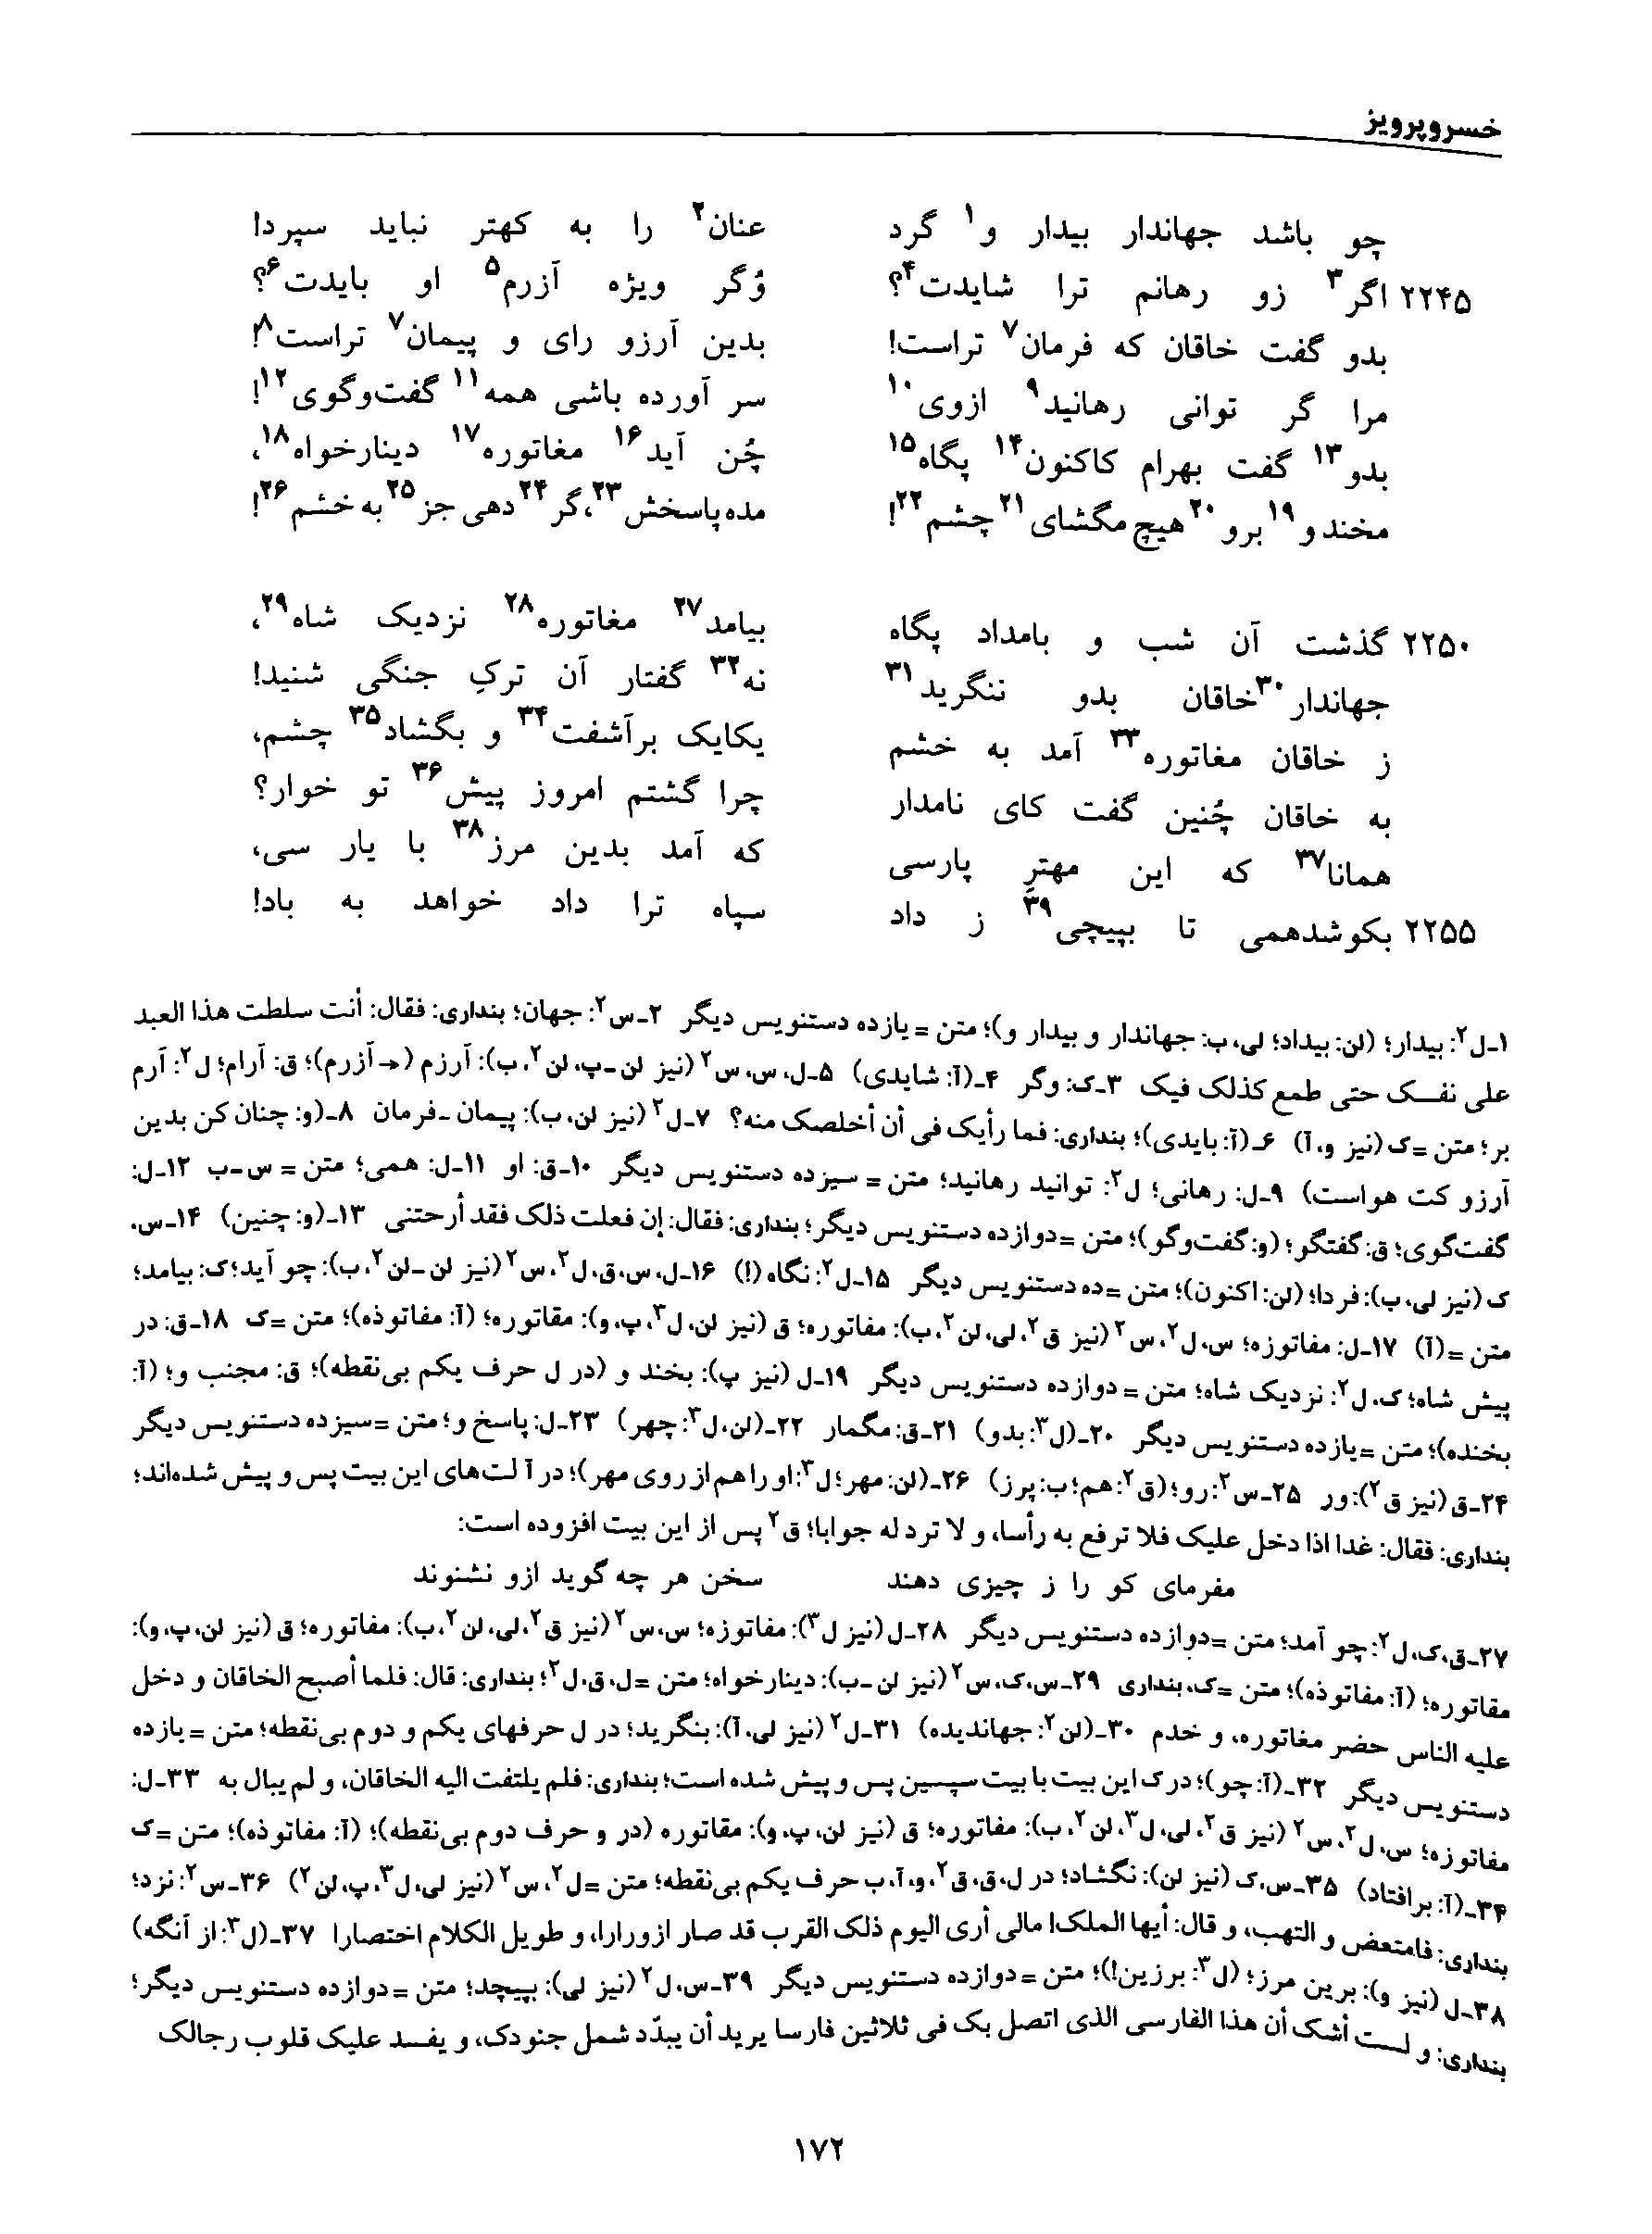 خسروپرویز
چو باشد جهاندار بیدار و۱ گرد عنان۲ را به کهتر نباید سپرد!
۲۲۴۵ اگر۳ زو رهانم ترا شایدت۴؟ وُگر ویژه آزرم۵ او بایدت۶؟
بدو گفت خاقان که فرمان۷ تراست! بدین آرزو رای و پیمان۷ تراست۸!
مرا گر توانی رهانید۹ ازوی۱۰ سر آورده باشی همه۱۱ گفت‌وگوی۱۲!
بدو۱۳ گفت بهرام کاکنون۱۴ پگاه۱۵ چُن آید۱۶ مغاتوره۱۷ دینارخواه۱۸،
مخند و۱۹ برو۲۰ هیچ مگشای۲۱ چشم۲۲! مده پاسخش۲۳،گر۲۴ دهی جز۲۵ به خشم۲۶!
۲۲۵۰ گذشت آن شب و بامداد پگاه بیامد۲۷ مغاتوره۲۸ نزدیک شاه۲۹،
جهاندار۳۰ خاقان بدو ننگرید۳۱ نه۳۲ گفتار آن ترکِ جنگی شنید!
ز خاقان مغاتوره۳۳ آمد به خشم یکایک برآشفت۳۴ و بگشاد۳۵ چشم،
به خاقان چُنین گفت کای نامدار چرا گشتم امروز پیش۳۶ تو خوار؟
همانا۳۷ که این مهترِ پارسی که آمد بدین مرز۳۸ با یار سی،
۲۲۵۵ بکوشدهمی تا بپیچی۳۹ ز داد سپاه ترا داد خواهد به باد!
۱ـ‌ل۲: بیدار؛ (لن: بیداد؛ لی، پ: جهاندار و بیدار و)؛ متن = یازده دستنویس دیگر ۲ـ‌س۲: جهان؛ بنداری: فقال: أنت سلطت هذا العبد
علی نفسک حتی طمع کذلک فیک ۳ـ‌ک: وگر ۴ـ(آ: شایدی) ۵ـ‌ل، س، س۲ (نیز لن-پ، لن۲، ب): آرزم (← آزرم)؛ ق: آرام؛ ل۲: آرم
بر؛ متن =ک (نیز و، آ) ۶ـ(آ: بایدی)؛ بنداری: فما رأیک فی أن أخلصک منه؟ ۷ـ‌ل۲ (نیز لن، ب): پیمان ـ فرمان ۸ـ(و: چنان کن بدین
آرزو کت هواست) ۹ـ‌ل: رهانی؛ ل۲: توانید رهانید؛ متن = سیزده دستنویس دیگر ۱۰ـ‌ق: او ۱۱ـ‌ل: همی؛ متن = س-ب ۱۲ـ‌ل:
گفت‌گوی؛ ق: گفتگر؛ (و: گفت‌وگو)؛ متن =دوازده دستنویس دیگر؛ بنداری: فقال: إن فعلت ذلک فقد أرحتنی ۱۳ـ(و: چنین) ۱۴ـ‌س،
ک (نیز لی، ب): فردا؛ (لن: اکنون)؛ متن =ده دستنویس دیگر ۱۵ـ‌ل۲: نگاه (!) ۱۶ـ‌ل، س، ق، ل۲، س۲ (نیز لن-لن۲، ب): چو آید؛ ک: بیامد؛
متن =(آ) ۱۷ـ‌ل: مفاتوزه؛ س، ل۲، س۲ (نیز ق۲، لی، لن۲، ب): مفاتوره؛ ق (نیز لن، ل۳، پ، و): مقاتوره؛ (آ: مفاتوذه)؛ متن =ک ۱۸ـ‌ق: در
پیش شاه؛ ک، ل۲: نزدیک شاه؛ متن = دوازده دستنویس دیگر ۱۹ـ‌ل (نیز پ): بخند و (در ل حرف یکم بی‌نقطه)؛ ق: مجنب و؛ (آ:
بخنده)؛ متن =یازده دستنویس دیگر ۲۰ـ(ل۳: بدو) ۲۱ـ‌ق: مگمار ۲۲ـ(لن، ل۳: چهر) ۲۳ـ‌ل: پاسخ و؛ متن =سیزده دستنویس دیگر
۲۴ـ‌ق (نیز ق۲): ور ۲۵ـ‌س۲: رو؛ (ق۲: هم؛ ب: پرز) ۲۶ـ(لن: مهر؛ ل۳: او را هم از روی مهر)؛ در آ لت‌های این بیت پس و پیش شده‌اند؛
بنداری: فقال: غدا اذا دخل علیک فلا ترفع به رأسا، و لا ترد له جوابا؛ ق۲ پس از این بیت افزوده است:
مفرمای کو را ز چیزی دهند سخن هر چه گوید ازو نشنوند
۲۷ـ‌ق، ک، ل۲: چو آمد؛ متن =دوازده دستنویس دیگر ۲۸ـ‌ل (نیز ل۳): مفاتوزه؛ س، س۲ (نیز ق۲، لی، لن۲، ب): مفاتوره؛ ق (نیز لن، پ، و):
مقاتوره؛ (آ: مفاتوذه)؛ متن =ک، بنداری ۲۹ـ‌س، ک، س۲ (نیز لن -ب): دینارخواه؛ متن =ل، ق، ل۲؛ بنداری: قال: فلما أصبح الخاقان و دخل
علیه الناس حضر مغاتوره، و خدم ۳۰ـ(لن۲: جهاندیده) ۳۱ـ‌ل۲ (نیز لی، آ): بنگرید؛ در ل حرفهای یکم و دوم بی‌نقطه؛ متن = یازده
دستنویس دیگر ۳۲ـ(آ: چو)؛ در ک این بیت با بیت سپسین پس و پیش شده است؛ بنداری: فلم یلتفت الیه الخاقان، و لم یبال به ۳۳ـ‌ل:
مفاتوزه؛ س، ل۲، س۲ (نیز ق۲، لی، ل۳، لن۲، ب): مفاتوره؛ ق (نیز لن، پ، و): مقاتوره (در و حرف دوم بی‌نقطه)؛ (آ: مفاتوذه)؛ متن =ک
۳۴ـ(آ: برافتاد) ۳۵ـ‌س، ک (نیز لن): نگشاد؛ در ل، ق، ق۲، و، آ، ب حرف یکم بی‌نقطه؛ متن =ل۲، س۲ (نیز لی، ل۳، پ، لن۲) ۳۶ـ‌س۲: نزد؛
بنداری: فامتعض و التهب، و قال: أیها الملک! مالی أری الیوم ذلک القرب قد صار ازورارا، و طویل الکلام اختصارا ۳۷ـ(ل۳: از آنگه)
۳۸ـ‌ل (نیز و): برین مرز؛ (ل۳: برزین!)؛ متن =دوازده دستنویس دیگر ۳۹ـ‌س، ل۲ (نیز لی): بپیچد؛ متن =دوازده دستنویس دیگر؛
بنداری: و لست أشک أن هذا الفارسی الذی اتصل بک فی ثلاثین فارسا یرید أن یبدّد شمل جنودک، و یفسد علیک قلوب رجالک
۱۷۲